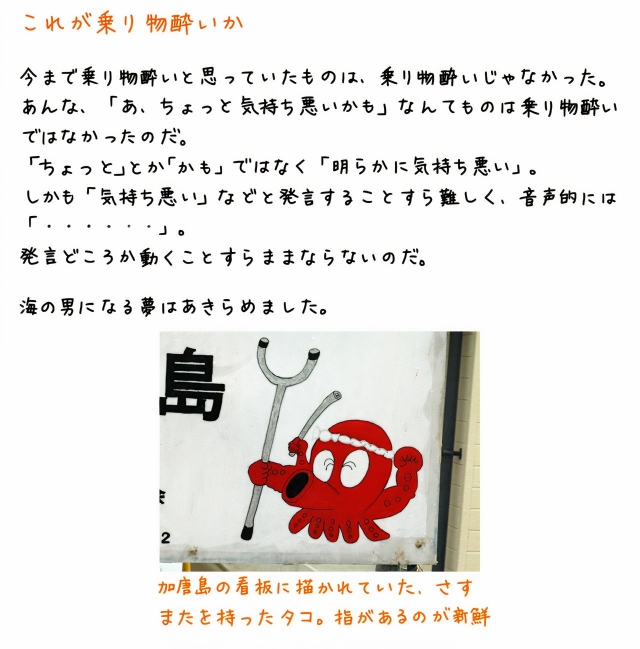 これが乗り物酔いか
今まで乗り物酔いと思っていたものは、乗り物酔いじゃなかった。
あんな、「あ、ちょっと気持ち悪いかも」なんてものは乗り物酔い
ではなかったのだ。
「ちょっと」とか「かも」ではなく「明らかに気持ち悪い」。
しかも「気持ち悪い」などと発言することすら難しく、音声的には
「・・・・・・」。
発言どころか動くことすらままならないのだ。
海の男になる夢はあきらめました。
島
2
加唐島の看板に描かれていた、さす
またを持ったタコ。指があるのが新鮮